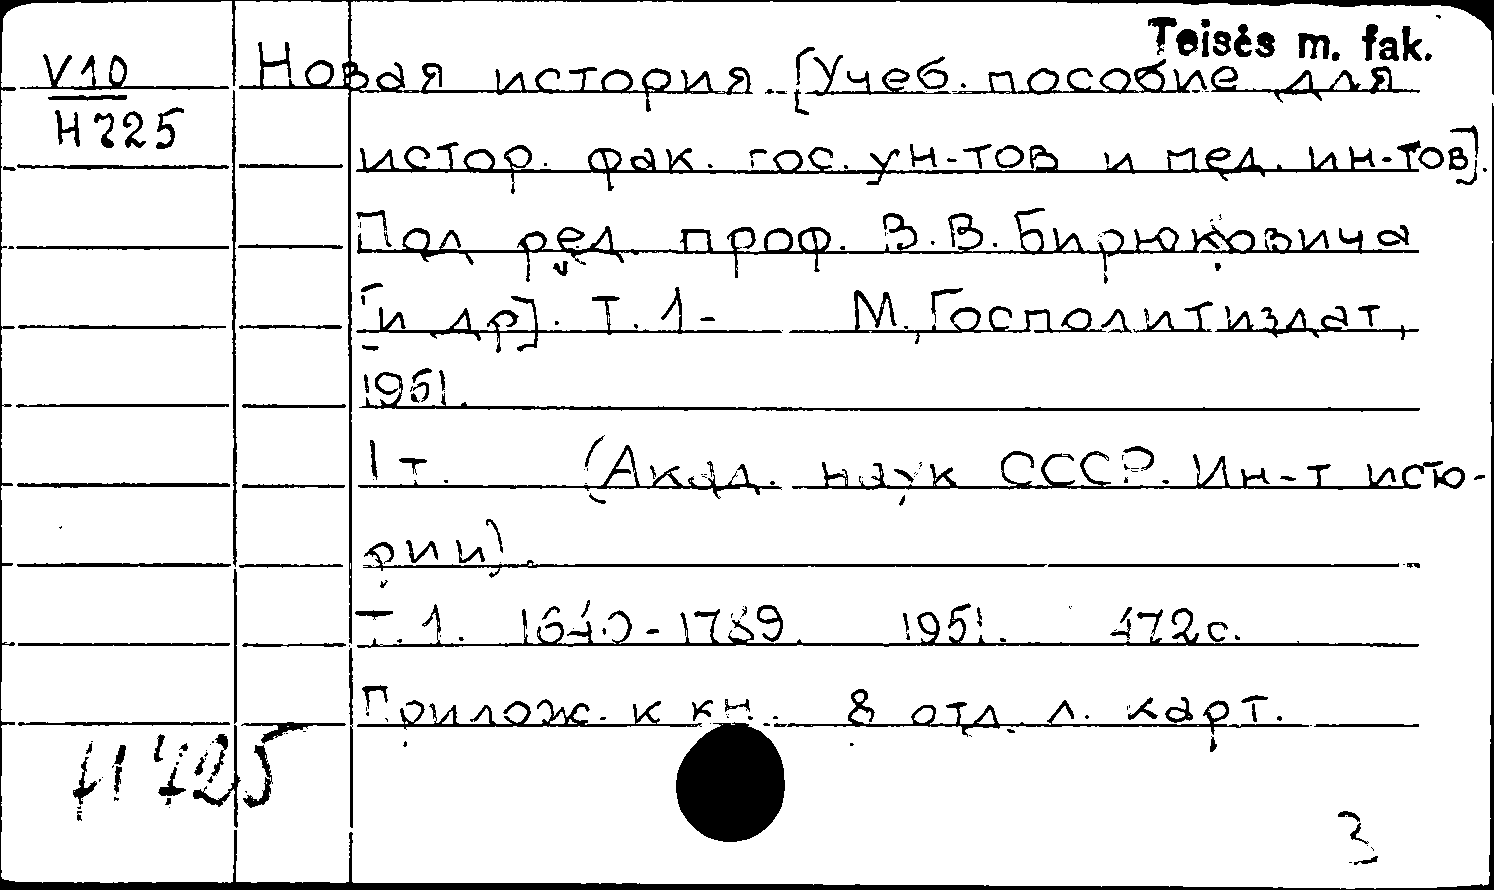 Teisės m. fak.
V10
Н725
Новая история [Учеб. пособие для
истор. фак. гос. ун-тов и пед. ин-тов].
Под ред. проф. В.В. Бирюковича
[и др]. Т. 1- М., Госполитиздат,
1951.
1 т. (Акад. наук СССР. Ин-т исто-
рии).
Т. 1. 1640-1789. 1951. 472с.
Прилож. к кн. 8 отд. л. карт.
Н725
3